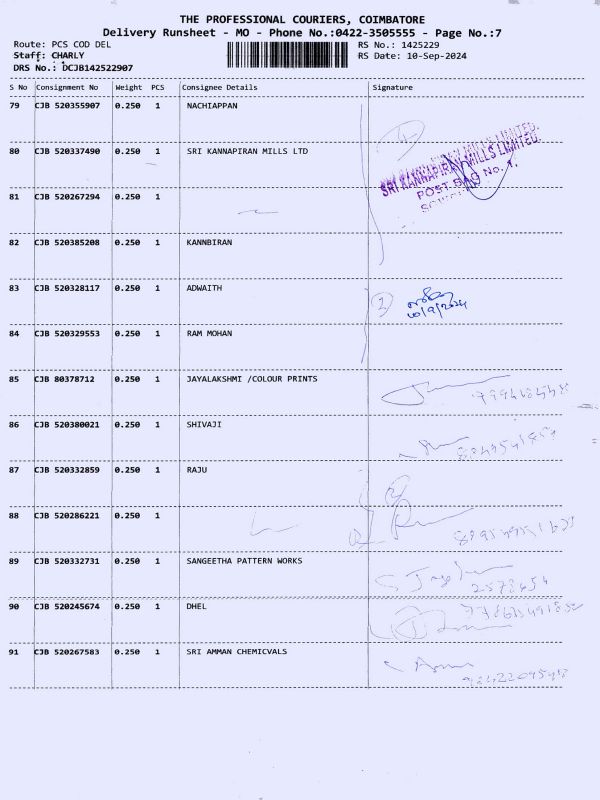 THE PROFESSIONAL COURIERS, COIMBATORE
Delivery Runsheet - MO - Phone No.:0422-3505555 - Page No.:7
Route: PCS COD DEL RS No.: 1425229
Staff: CHARLY RS Date: 10-Sep-2024
DRS No.: DCJB142522907
S No Consignment No Weight PCS Consignee Details Signature
79 CJB 520355907 0.250 1 NACHIAPPAN
80 CJB 520337490 0.250 1 SRI KANNAPIRAN MILLS LTD
SRI KANNAPIRAN MILLS LIMITED.
POST BAG No. 1,
81 CJB 520267294 0.250 1
82 CJB 520385208 0.250 1 KANNBIRAN
83 CJB 520328117 0.250 1 ADWAITH
10/9/2024
84 CJB 520329553 0.250 1 RAM MOHAN
85 CJB 80378712 0.250 1 JAYALAKSHMI /COLOUR PRINTS
86 CJB 520380021 0.250 1 SHIVAJI
87 CJB 520332859 0.250 1 RAJU
88 CJB 520286221 0.250 1
89 CJB 520332731 0.250 1 SANGEETHA PATTERN WORKS
90 CJB 520245674 0.250 1 DHEL
91 CJB 520267583 0.250 1 SRI AMMAN CHEMICVALS